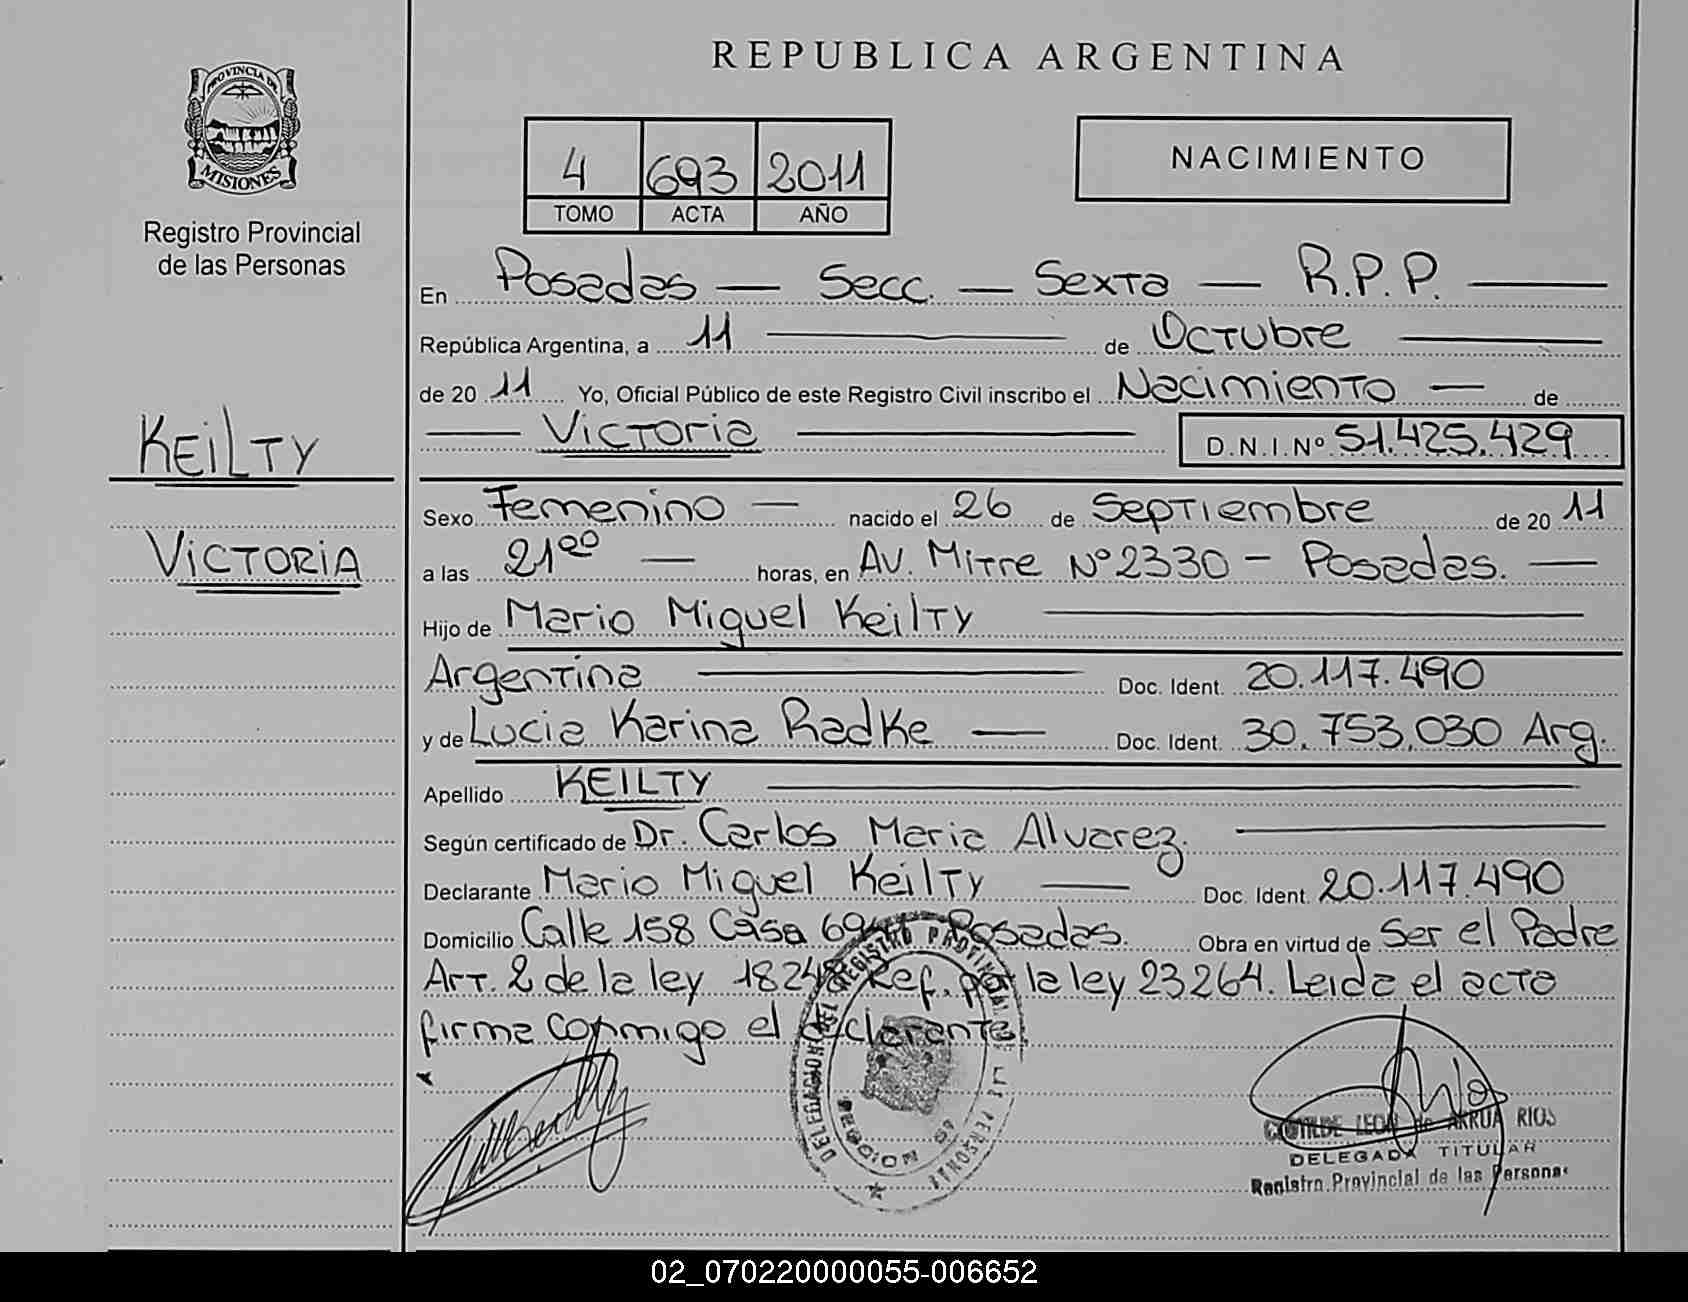 REPUBLICA ARGENTINA
PROVINCIA DE
MISIONES
Registro Provincial
de las Personas
4 693 2011
TOMO ACTA AÑO
NACIMIENTO
En Posadas — Secc. — Sexta — R.P.P. —
República Argentina, a 11 — de Octubre —
de 20 11 Yo, Oficial Público de este Registro Civil inscribo el Nacimiento — de
— Victoria — D.N.I.Nº 51.425.429
KEILTY
VICTORIA
Sexo Femenino — nacido el 26 de Septiembre de 20 11
a las 21⁰⁰ — horas, en Av. Mitre Nº 2330 - Posadas. —
Hijo de Mario Miguel Keilty —
Argentina — Doc. Ident. 20.117.490
y de Lucia Karina Radke — Doc. Ident. 30.753.030 Arg.
Apellido KEILTY —
Según certificado de Dr. Carlos Maria Alvarez. —
Declarante Mario Miguel Keilty — Doc. Ident. 20.117.490
Domicilio Calle 158 Casa Posadas. Obra en virtud de Ser el Padre
Art. 2 de la ley 18248 Ref. por la ley 23264. Leida el acta
firma conmigo el declarante
DELEGACION DEL REGISTRO PROVINCIAL DE LAS PERSONAS
CLOTILDE LEON de ARRUA RIOS
DELEGADA TITULAR
Registro Provincial de las Personas
02_070220000055-006652